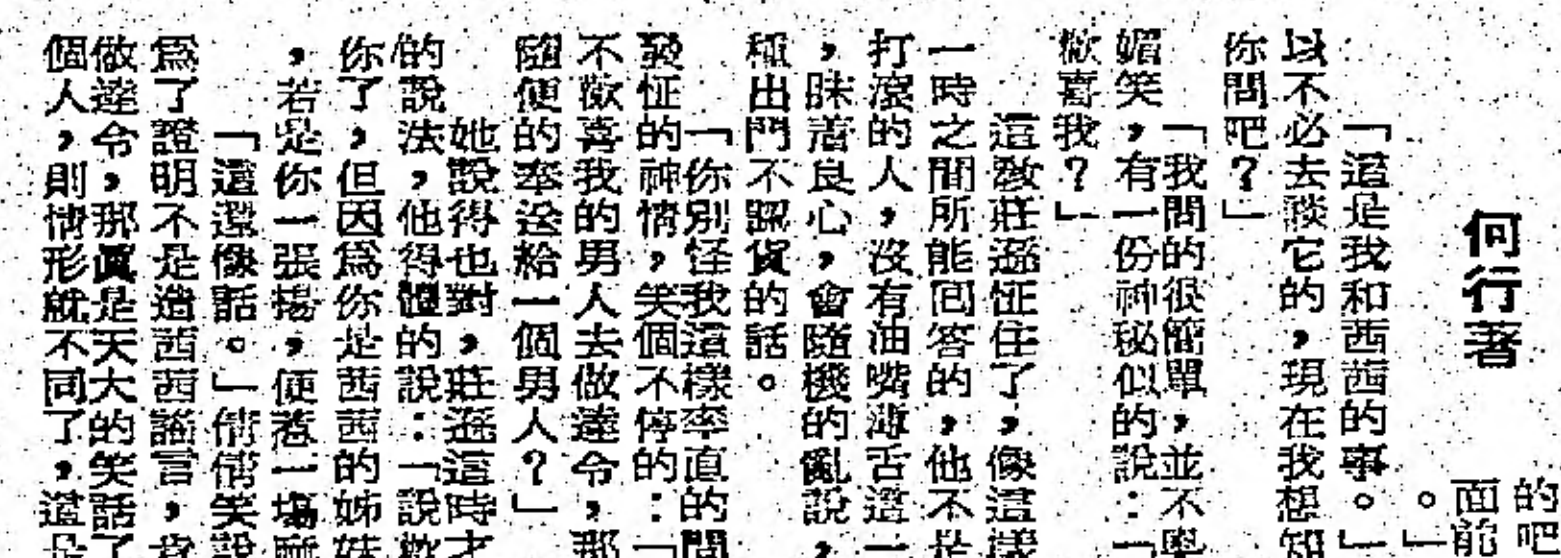 的吧
面前
。」
何行著
「這是我和西西的事。」
以不必去談它的,現在我想知
你問吧?」
「我問的很簡單,並不與
媚笑,有一份神秘似的說:「
歡喜我?」
這教莊遜怔住了,像這樣
一時之間所能囘答的,他不是
打滾的人,沒有油嘴薄舌這一
,昧着良心,會隨機的亂說,
種出門不認貨的話。
「你別怪我這樣率直的問
發怔的神情,笑個不停的:「
不歡喜我的男人去做達令,那
隨便的奉送給一個男人?」
她說得也對,莊遜這時才
的說法,他得體的說:「說歡
你了,但因爲你是茜茜的姊妹
,若是你一張揚,便惹一場麻
「這還像話。」倩倩笑說
爲了證明不是造茜茜謠言,肯
做達令,那眞是天大的笑話了
個人,則情形就不同了,這是